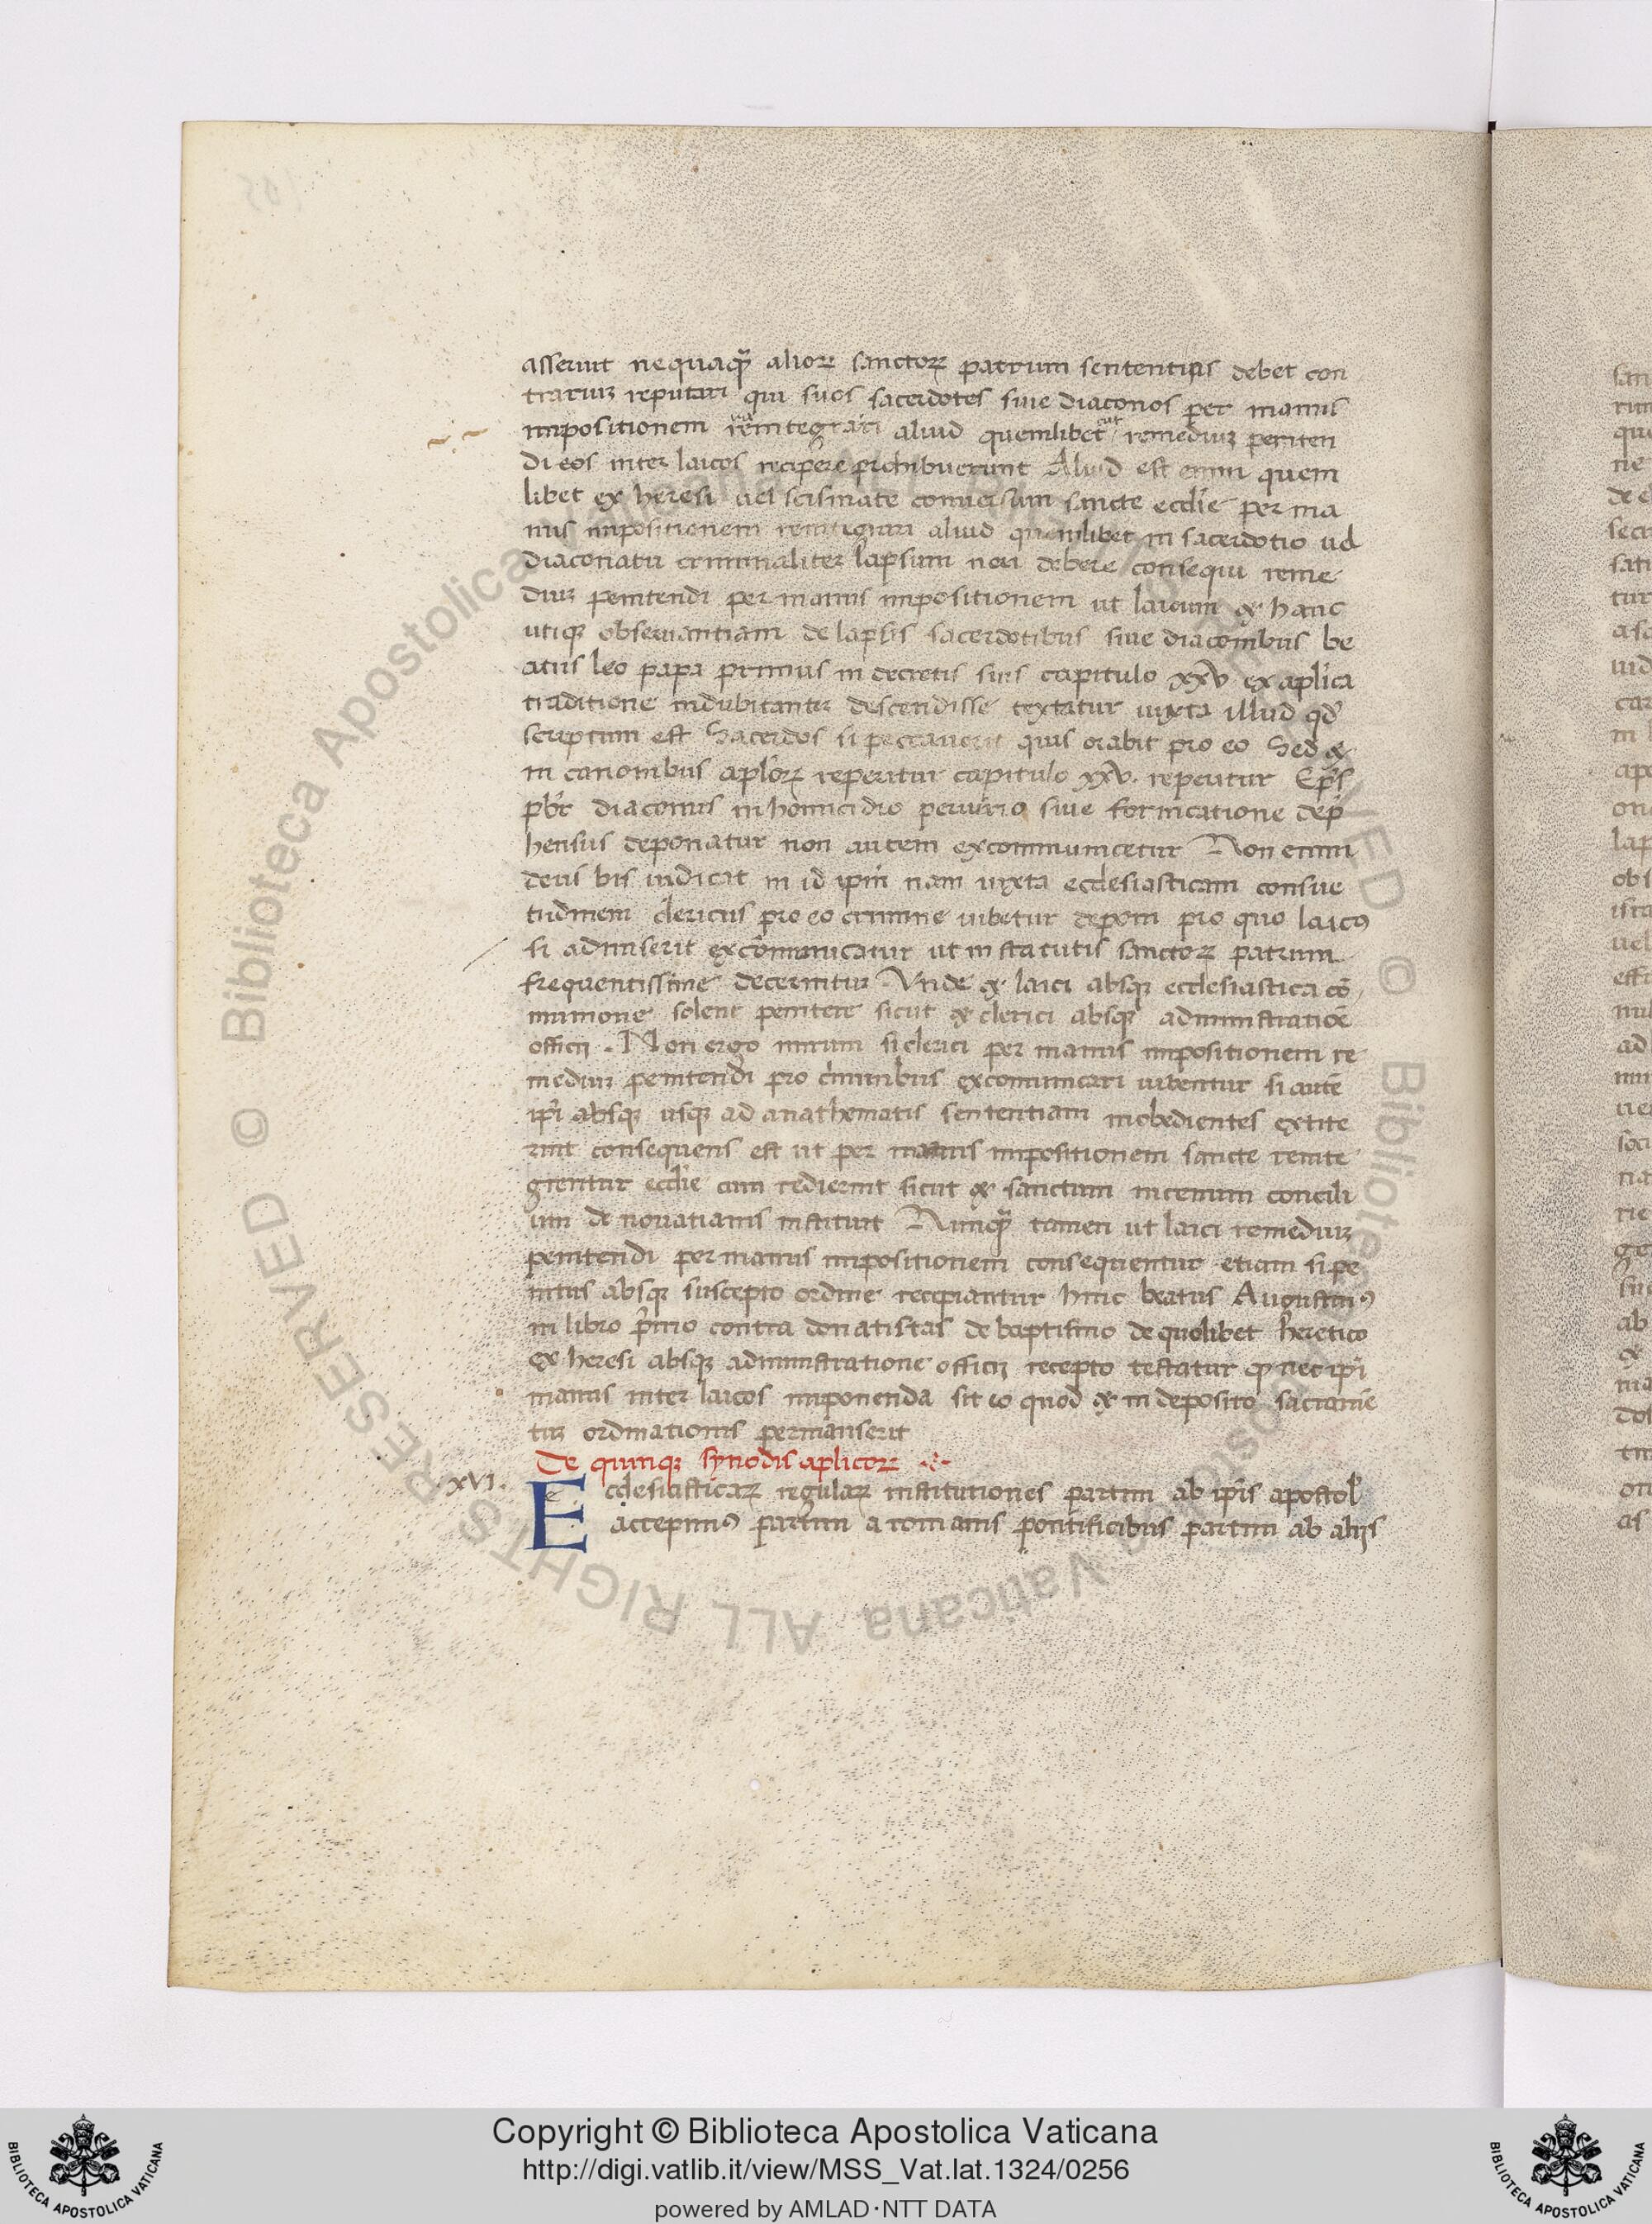 asseruit nequaq̃ alioꝝ sanctoꝝ patrum sententiis debet con
trariuꝫ reputari qui suos sacerdotes siue diaconos per manus
impositionem reintegrari aliud quemlibet remediuꝫ peniten
di eos inter laicos recipere prohibuerunt Aliud est enim quem
libet ex heresi uel scismate conuersum sancte ecclie per ma
nus impositionem reintegrari aliud quemlibet in sacerdotio uel
diaconatu criminaliter lapsum non debere consequi reme
diuꝫ penitendi per manus impositionem ut laicum & hanc
utiqꝫ obseruantiam de lapsis sacerdotibus siue diaconibus be
atus leo papa primus in decretis suis capitulo xxv ex aplica
traditione indubitanter descendisse textatur iuxta illud qđ
scriptum est Sacerdos si peccauerit quis orabit pro eo Sed &
in canonibus aploꝝ reperitur capitulo xxv. reperitur Ep̃s
pb̃r diaconus in homicidio periurio siue fornicatione dep̃
hensus deponatur non autem excommunicetur Non enim
deus bis iudicat in id ip̃m nam iuxta ecclesiasticam consue
tudinem clericus pro eo crimine iubetur deponi pro quo laicꝯ
si admiserit excõmunicatur ut in statutis sanctoꝝ patrum
frequentissime decernitur Vnde & laici absqꝫ ecclesiastica cõ
munione solent penitere sicut & clerici absqꝫ administratiõe
officij. Non ergo mirum si clerici per manus impositionem re
mediuꝫ penitendi pro c̃minibus excomunicari iubentur si autẽ
ip̃i absqꝫ usqꝫ ad anathematis sententiam inobedientes extite
rint consequens est ut per manus impositionem sancte reinte
grentur ecclie cum redierint sicut & sanctum nicenum concili
um de nouatianis instituit Nunq̃ tamen ut laici remediuꝫ
penitendi per manus impositionem consequentur etiam si pe
nitus absqꝫ suscepto ordine recipiantur hinc beatus Augustinꝯ
in libro p̃mo contra donatistas de baptismo de quolibet heretico
ex heresi absqꝫ administratione officij recepto testatur ꝙ nec ip̃i
manus inter laicos imponenda sit eo quod & in deposito sacramẽ
tuꝫ ordinationis permanserit
De quinqꝫ synodis aplicoꝝ
.XVI. Ecclesiasticaꝝ regulaꝝ institutiones partim ab ip̃is apostol̃
accepimꝯ partim a romanis pontificibus partim ab alijs
Copyright © Biblioteca Apostolica Vaticana
http://digi.vatlib.it/view/MSS_Vat.lat.1324/0256
powered by AMLAD·NTT DATA